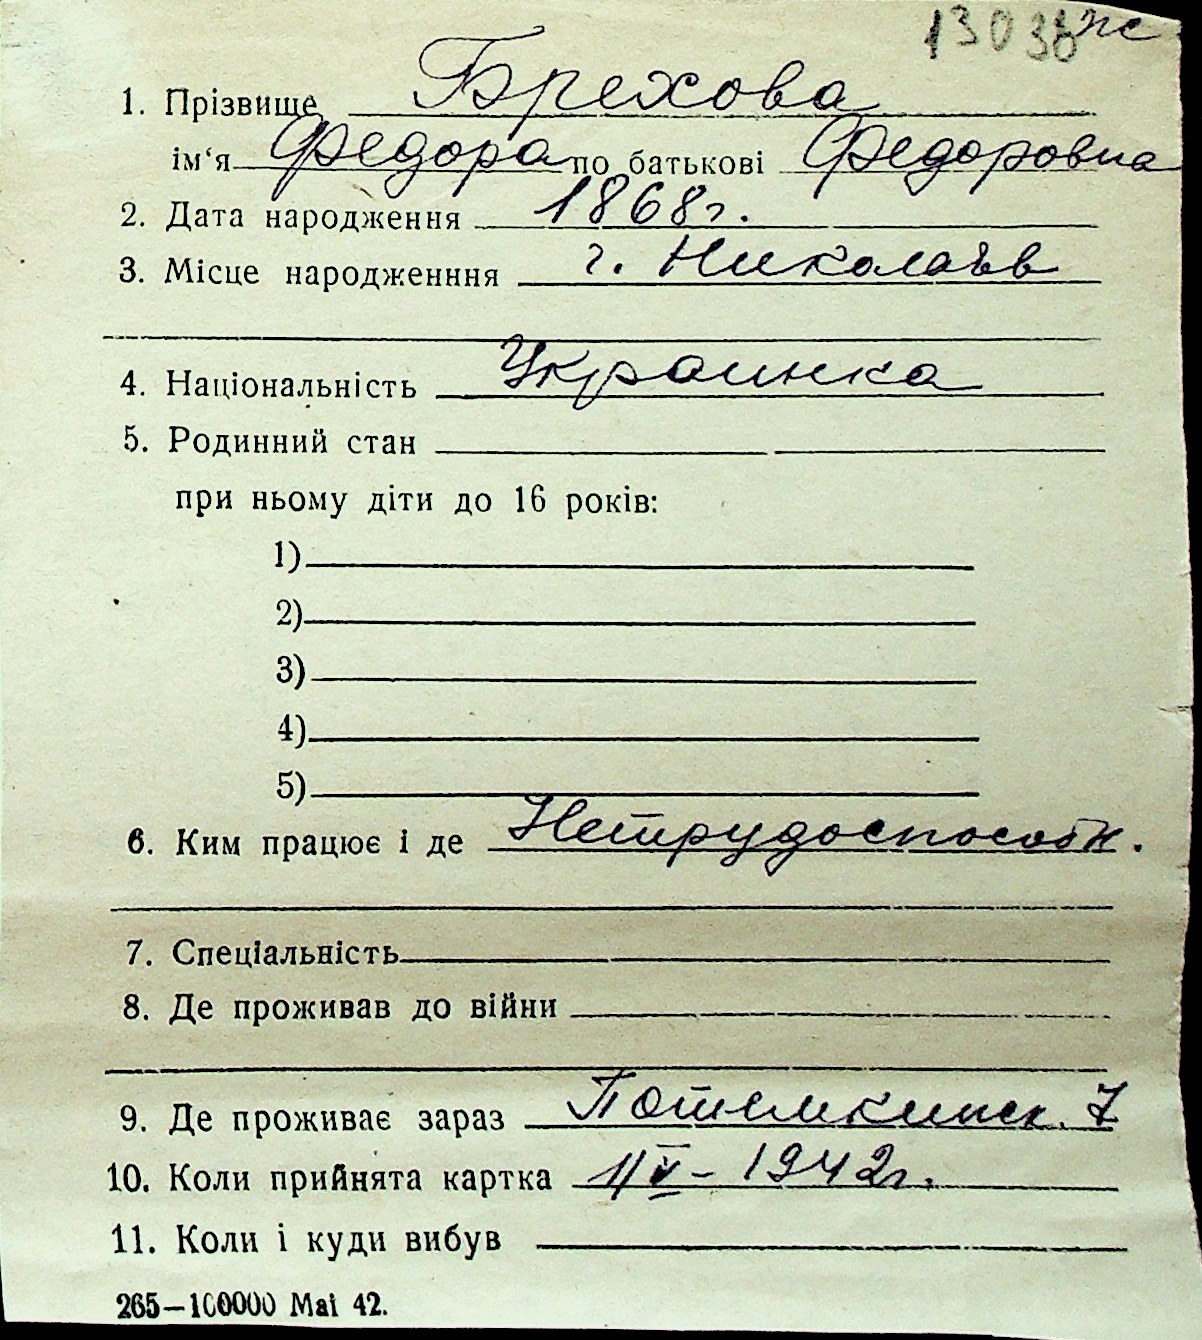 13038 жс
1. Прізвище Брехова
ім‘я Федора по батькові Федоровна
2. Дата народження 1868г.
3. Місце народженння г. Николаѣв
4. Національність Украинка
5. Родинний стан
при ньому діти до 16 років:
1)
2)
3)
4)
5)
6. Ким працює і де Нетрудоспособн.
7. Спеціальність
8. Де проживав до війни
9. Де проживає зараз Потемкинск. 7
10. Коли прийнята картка 11/V - 1942г.
11. Коли і куди вибув
265—100000 Mai 42.